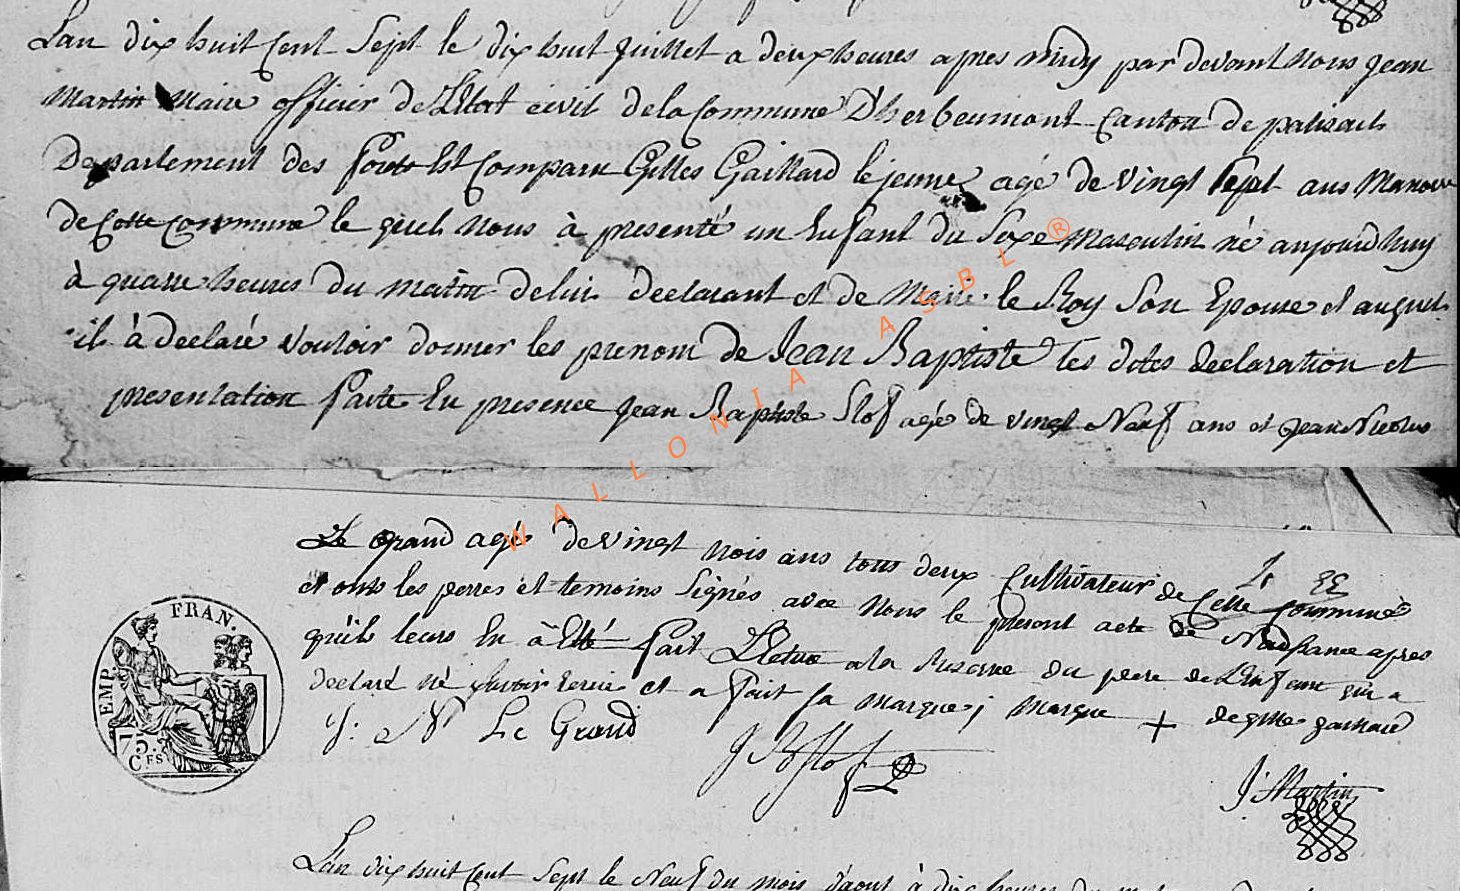 Lan dix huit Cent Sept le dix huit Juillet a deux heures apres midy par devant Nous Jean
Martin Maire officier de L'Etat civil de la Commune D'herbeumont Canton de paliseuls
Departement des forets Est Comparu Gilles Gaillard le jeune agé de vingt sept ans Manoeuvre
de Cette Commune le quel Nous à presenté un Enfant du Sexe Masculin né aujourdhuy
à quatre heures du matin de lui declarant et de Marie le Roy Son Epouse et auquel
il à declaré vouloir donner les prenom de Jean Baptiste les dites declaration et
presentation faite En presence Jean Baptiste Slof agé de vingt Neuf ans et Jean Nicolas
Le grand agé de vingt trois ans tous deux Cultivateur de Cette Commune
et onts les perres et temoins Signés avec Nous le present acte de Naissance apres
qu'ils leurs En à Etté fait Lecture a la Reserve du pere de L'Enfant qui a
declaré né Savoir Ecrire et a fait sa Marque; Marque + de gille gaillard
J: N Le Grand
J B Slof
J. Martin
EMP. FRAN.
75. CES
Lan dix huit Cent Sept le Neuf du mois d'aout à dix heures du
WALLONIA ASBL ®